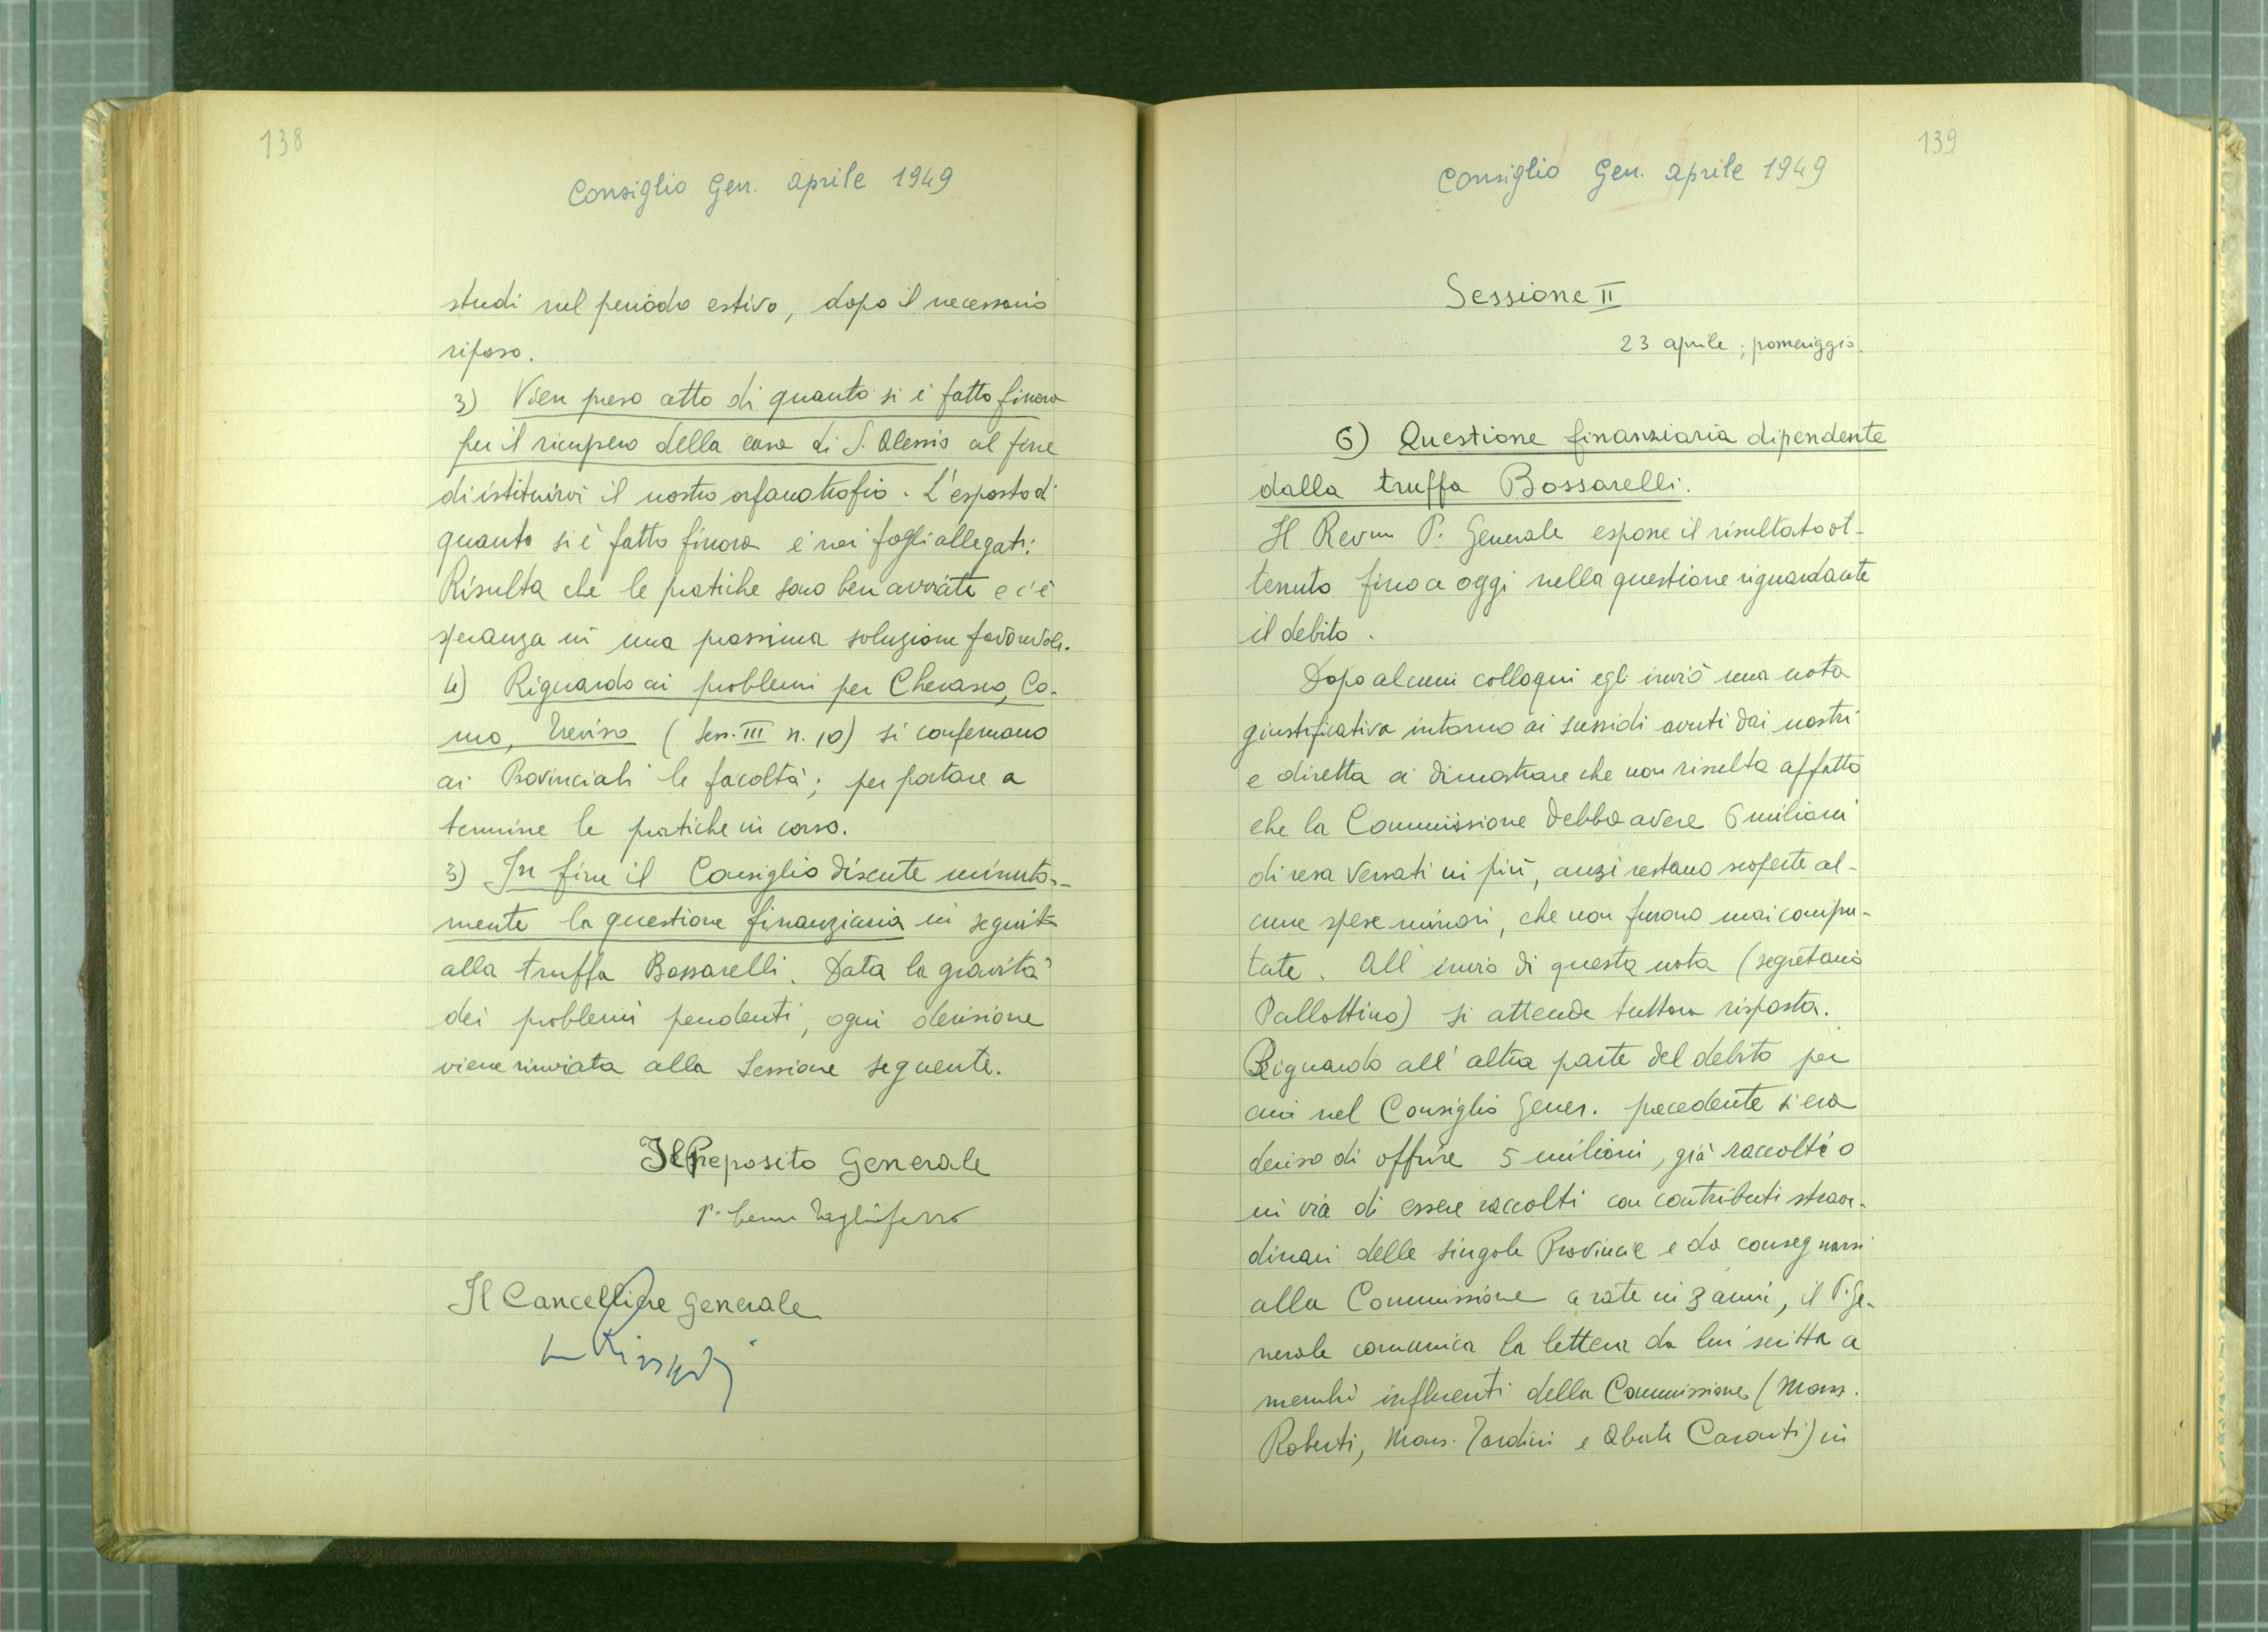 138
Consiglio Gen. aprile 1949
studi nel periodo estivo, dopo il necessario
riposo.
3) Vien preso atto di quanto si è fatto finora
per il ricupero della casa di S. Alessio al fine
di istituirvi il nostro orfanotrofio. L'esposto di
quanto si è fatto finora è nei fogli allegati.
Risulta che le pratiche sono ben avviate e c'è
speranza in una prossima soluzione favorevole.
4) Riguardo ai problemi per Cherasco, Co-
mo, Treviso (Sess. III n. 10) si confermano
ai Provinciali le facoltà; per portare a
termine le pratiche in corso.
5) In fine il Consiglio discute minuta-
mente la questione finanziaria in seguito
alla truffa Bossarelli. Data la gravità
dei problemi pendenti, ogni decisione
viene rinviata alla Sessione seguente.
Il Preposito Generale
P. Tagliaferro
Il Cancelliere Generale
139
Consiglio Gen. aprile 1949
Sessione II
23 aprile; pomeriggio.
6) Questione finanziaria dipendente
dalla truffa Bossarelli.
Il Revm P. Generale espone il risultato ot-
tenuto fino a oggi nella questione riguardante
il debito.
Dopo alcuni colloqui egli inviò una nota
giustificativa intorno ai sussidi avuti dai nostri
e diretta a dimostrare che non risulta affatto
che la Commissione debba avere 6 milioni
di resa versati in più, anzi restano scoperte al-
cune spese minori, che non furono mai compu-
tate. All'invio di questa nota (segretario
Pallottino) si attende tuttora risposta.
Riguardo all'altra parte del debito per
cui nel Consiglio Gener. precedente s'era
deciso di offrire 5 milioni, già raccolti o
in via di essere raccolti con contributi straor-
dinari delle singole Provincie e da consegnarsi
alla Commissione a rate in 3 anni, il P. Ge-
nerale comunica la lettera da lui scritta a
membri influenti della Commissione (Mons.
Roberti, Mons. Tardini e Abate Caronti) in